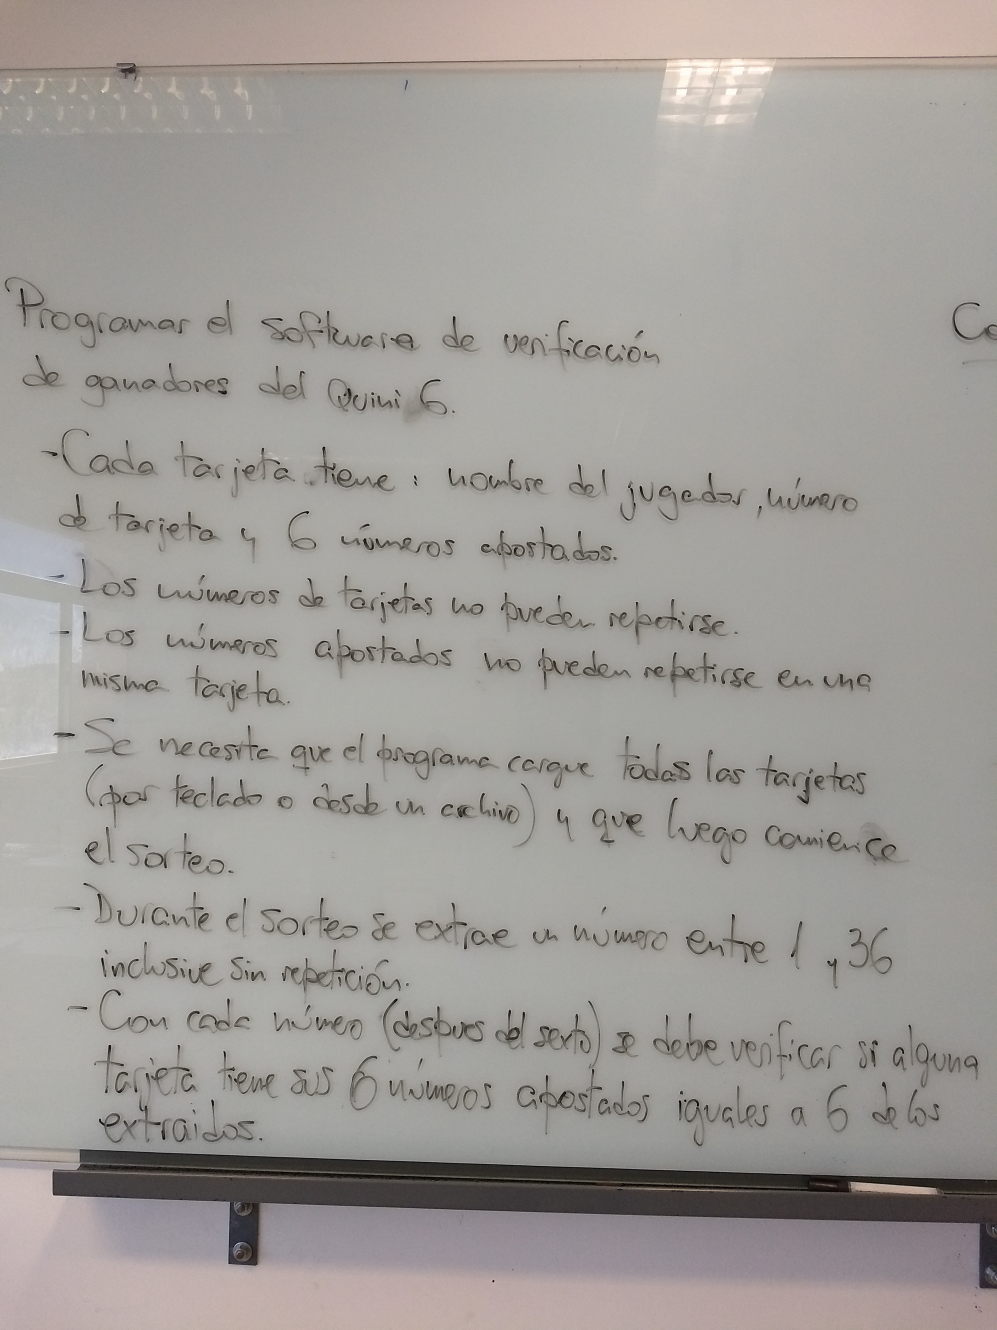 Programar el software de verificación
de ganadores del Quini 6.
Co
- Cada tarjeta tiene: nombre del jugador, número
de tarjeta y 6 números apostados.
- Los números de tarjetas no pueden repetirse.
- Los números apostados no pueden repetirse en una
misma tarjeta.
- Se necesita que el programa cargue todas las tarjetas
(por teclado o desde un archivo) y que luego comience
el sorteo.
- Durante el sorteo se extrae un número entre 1 y 36
inclusive sin repetición.
- Con cada número (despues del sexto) se debe verificar si alguna
tarjeta tiene sus 6 números apostados iguales a 6 de los
extraidos.